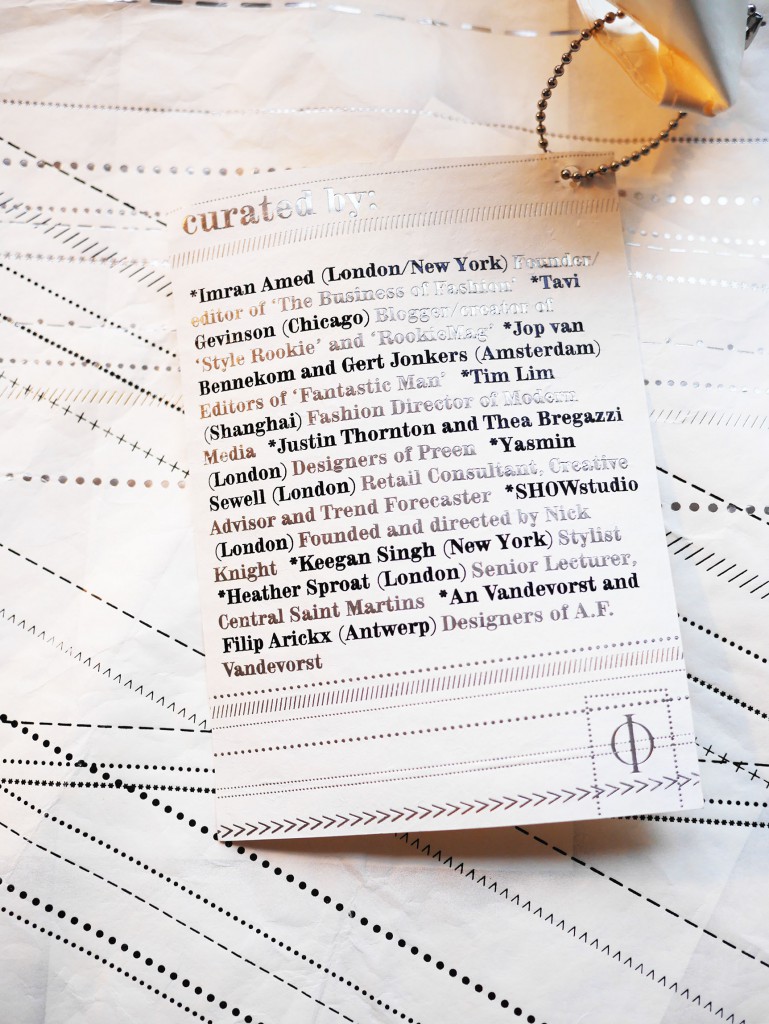 curated by:
*Imran Amed (London/New York) Founder/
editor of ‘The Business of Fashion’ *Tavi
Gevinson (Chicago) Blogger/creator of
‘Style Rookie’ and ‘RookieMag’ *Jop van
Bennekom and Gert Jonkers (Amsterdam)
Editors of ‘Fantastic Man’ *Tim Lim
(Shanghai) Fashion Director of Modern
Media *Justin Thornton and Thea Bregazzi
(London) Designers of Preen *Yasmin
Sewell (London) Retail Consultant, Creative
Advisor and Trend Forecaster *SHOWstudio
(London) Founded and directed by Nick
Knight *Keegan Singh (New York) Stylist
*Heather Sproat (London) Senior Lecturer,
Central Saint Martins *An Vandevorst and
Filip Arickx (Antwerp) Designers of A.F.
Vandevorst